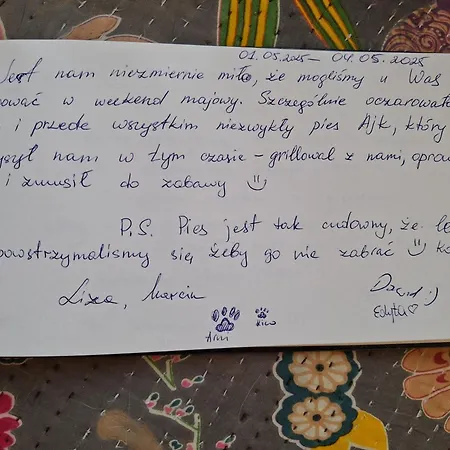 01.05.2025 – 04.05.2025
Jest nam niezmiernie miło, że mogliśmy u Was
ować w weekend majowy. Szczególnie oczarowała
i przede wszystkim niezwykły pies Ajk, który
nam w tym czasie – grillował z nami, opro
i zmusił do zabawy
P.S. Pies jest tak cudowny, że le
powstrzymaliśmy się, żeby go nie zabrać
Liza, Marcin
Dawid :)
Edyta ♡